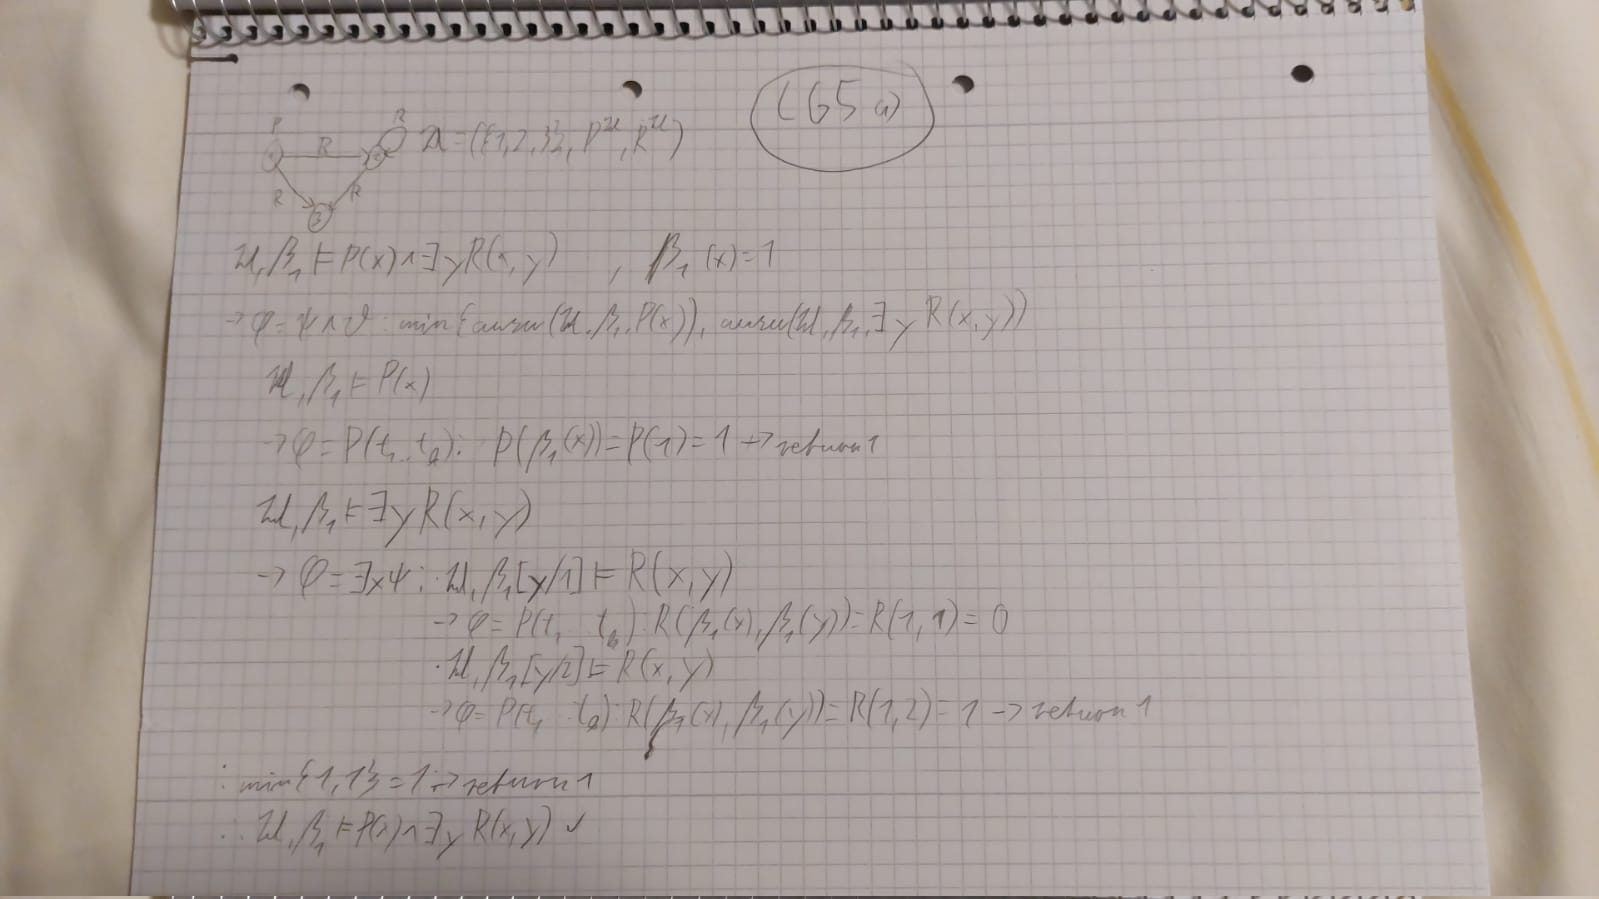 (G5 a)
P R R 𝔄 = ({1,2,3}, P^𝔄, R^𝔄)
1 2
R R
3
𝔄, β₁ ⊨ P(x) ∧ ∃y R(x, y) , β₁(x) = 1
→ φ = ψ ∧ ϑ : min{ausw(𝔄, β₁, P(x)), ausw(𝔄, β₁, ∃y R(x, y))
𝔄, β₁ ⊨ P(x)
→ φ = P(t₁..tₖ): P(β₁(x)) = P(1) = 1 → return 1
𝔄, β₁ ⊨ ∃y R(x, y)
→ φ = ∃xψ : · 𝔄, β₁[y/1] ⊨ R(x, y)
→ φ = P(t₁ tₖ) R(β₁(x), β₁(y)) = R(1, 1) = 0
· 𝔄, β₁[y/2] ⊨ R(x, y)
→ φ = P(t₁ .. tₖ): R(β₁(x), β₁(y)) = R(1, 2) = 1 → return 1
: min{1, 1} = 1 → return 1
∴ 𝔄, β₁ ⊨ P(x) ∧ ∃y R(x, y) ✓